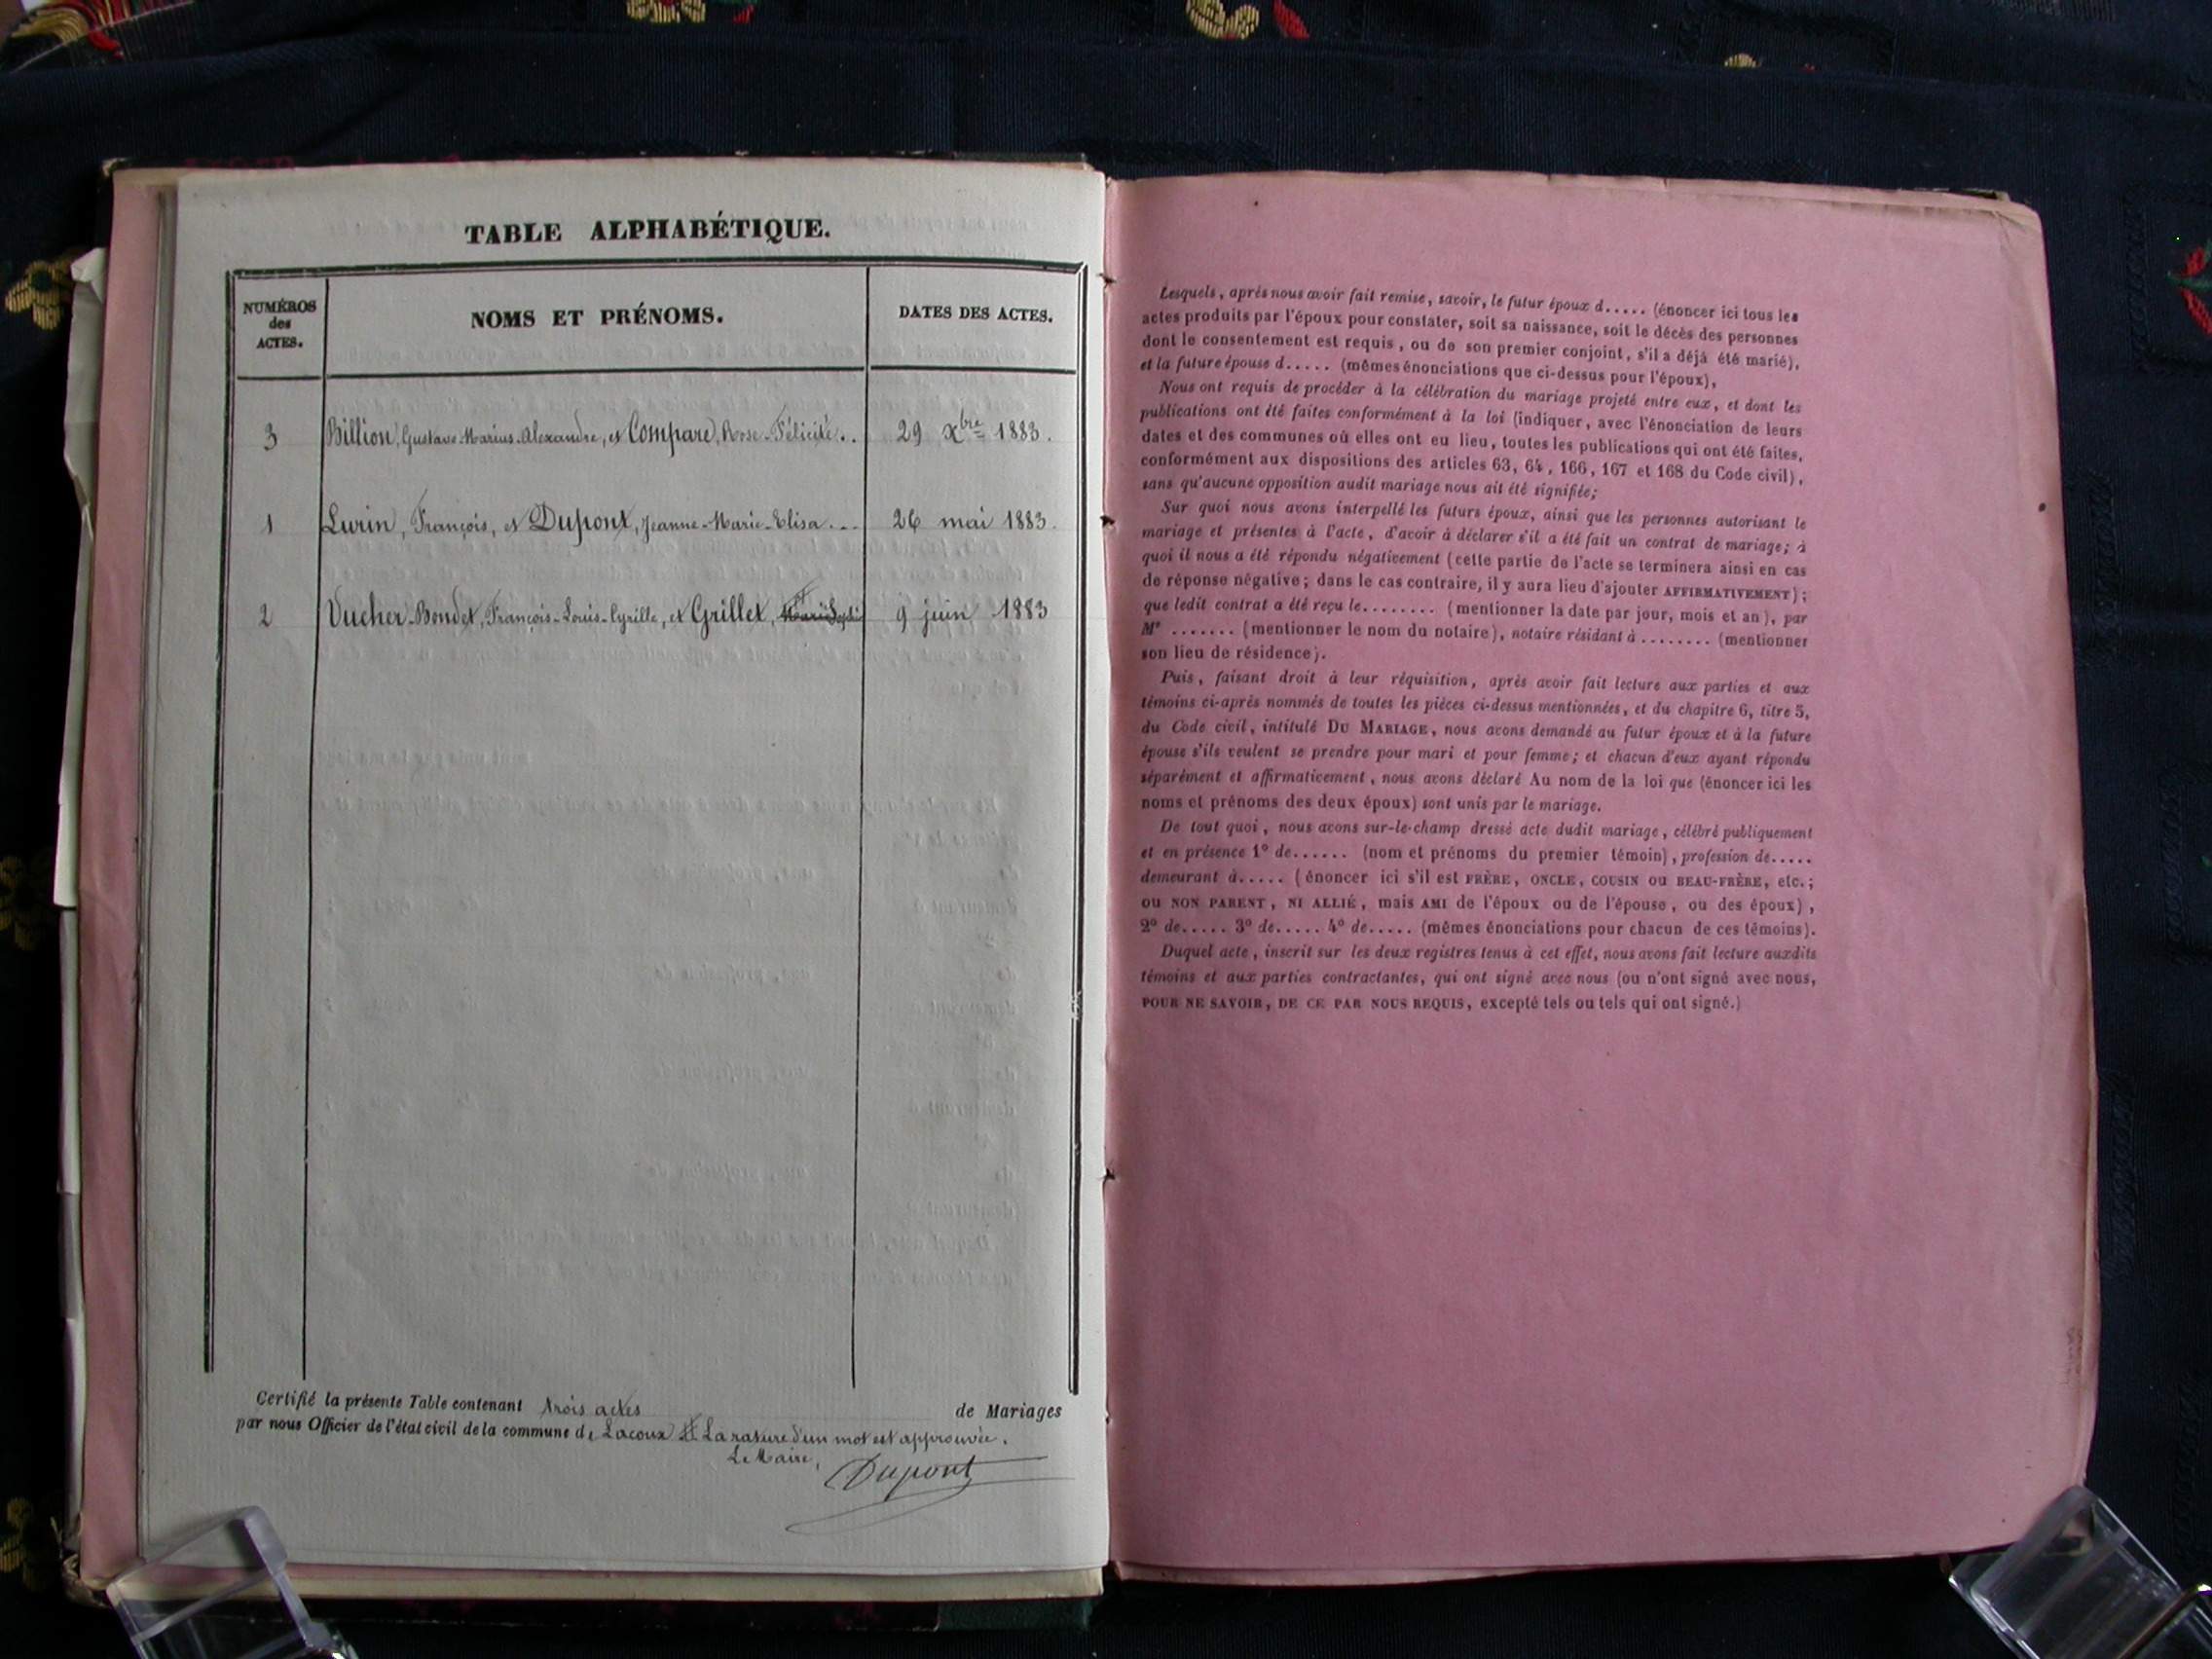 TABLE ALPHABÉTIQUE.
NUMÉROS des ACTES.
NOMS ET PRÉNOMS.
DATES DES ACTES.
3 Billion, Gustave-Marius-Alexandre, et Compare, Rose-Félicité.. 29 Xbre 1883.
1 Lurin, François, et Dupont, Jeanne-Marie-Elisa... 26 mai 1883.
2 Vucher-Bondet, François-Louis-Cyrille, et Grillet, 9 juin 1883
Certifié la présente Table contenant trois actes de Mariages
par nous Officier de l'état civil de la commune de Lacoux La rature d'un mot est approuvée.
Le Maire,
Dupont
Lesquels, après nous avoir fait remise, savoir, le futur époux d..... (énoncer ici tous les
actes produits par l'époux pour constater, soit sa naissance, soit le décès des personnes
dont le consentement est requis, ou de son premier conjoint, s'il a déjà été marié),
et la future épouse d..... (mêmes énonciations que ci-dessus pour l'époux),
Nous ont requis de procéder à la célébration du mariage projeté entre eux, et dont les
publications ont été faites conformément à la loi (indiquer, avec l'énonciation de leurs
dates et des communes où elles ont eu lieu, toutes les publications qui ont été faites,
conformément aux dispositions des articles 63, 64, 166, 167 et 168 du Code civil),
sans qu'aucune opposition audit mariage nous ait été signifiée;
Sur quoi nous avons interpellé les futurs époux, ainsi que les personnes autorisant le
mariage et présentes à l'acte, d'avoir à déclarer s'il a été fait un contrat de mariage; à
quoi il nous a été répondu négativement (cette partie de l'acte se terminera ainsi en cas
de réponse négative; dans le cas contraire, il y aura lieu d'ajouter AFFIRMATIVEMENT);
que ledit contrat a été reçu le........ (mentionner la date par jour, mois et an), par
Me ....... (mentionner le nom du notaire), notaire résidant à ........ (mentionner
son lieu de résidence).
Puis, faisant droit à leur réquisition, après avoir fait lecture aux parties et aux
témoins ci-après nommés de toutes les pièces ci-dessus mentionnées, et du chapitre 6, titre 5,
du Code civil, intitulé DU MARIAGE, nous avons demandé au futur époux et à la future
épouse s'ils veulent se prendre pour mari et pour femme; et chacun d'eux ayant répondu
séparément et affirmativement, nous avons déclaré Au nom de la loi que (énoncer ici les
noms et prénoms des deux époux) sont unis par le mariage.
De tout quoi, nous avons sur-le-champ dressé acte dudit mariage, célébré publiquement
et en présence 1° de...... (nom et prénoms du premier témoin), profession de.....
demeurant à..... (énoncer ici s'il est FRÈRE, ONCLE, COUSIN OU BEAU-FRÈRE, etc.;
OU NON PARENT, NI ALLIÉ, mais AMI de l'époux ou de l'épouse, ou des époux),
2° de..... 3° de..... 4° de..... (mêmes énonciations pour chacun de ces témoins).
Duquel acte, inscrit sur les deux registres tenus à cet effet, nous avons fait lecture auxdits
témoins et aux parties contractantes, qui ont signé avec nous (ou n'ont signé avec nous,
POUR NE SAVOIR, DE CE PAR NOUS REQUIS, excepté tels ou tels qui ont signé.)